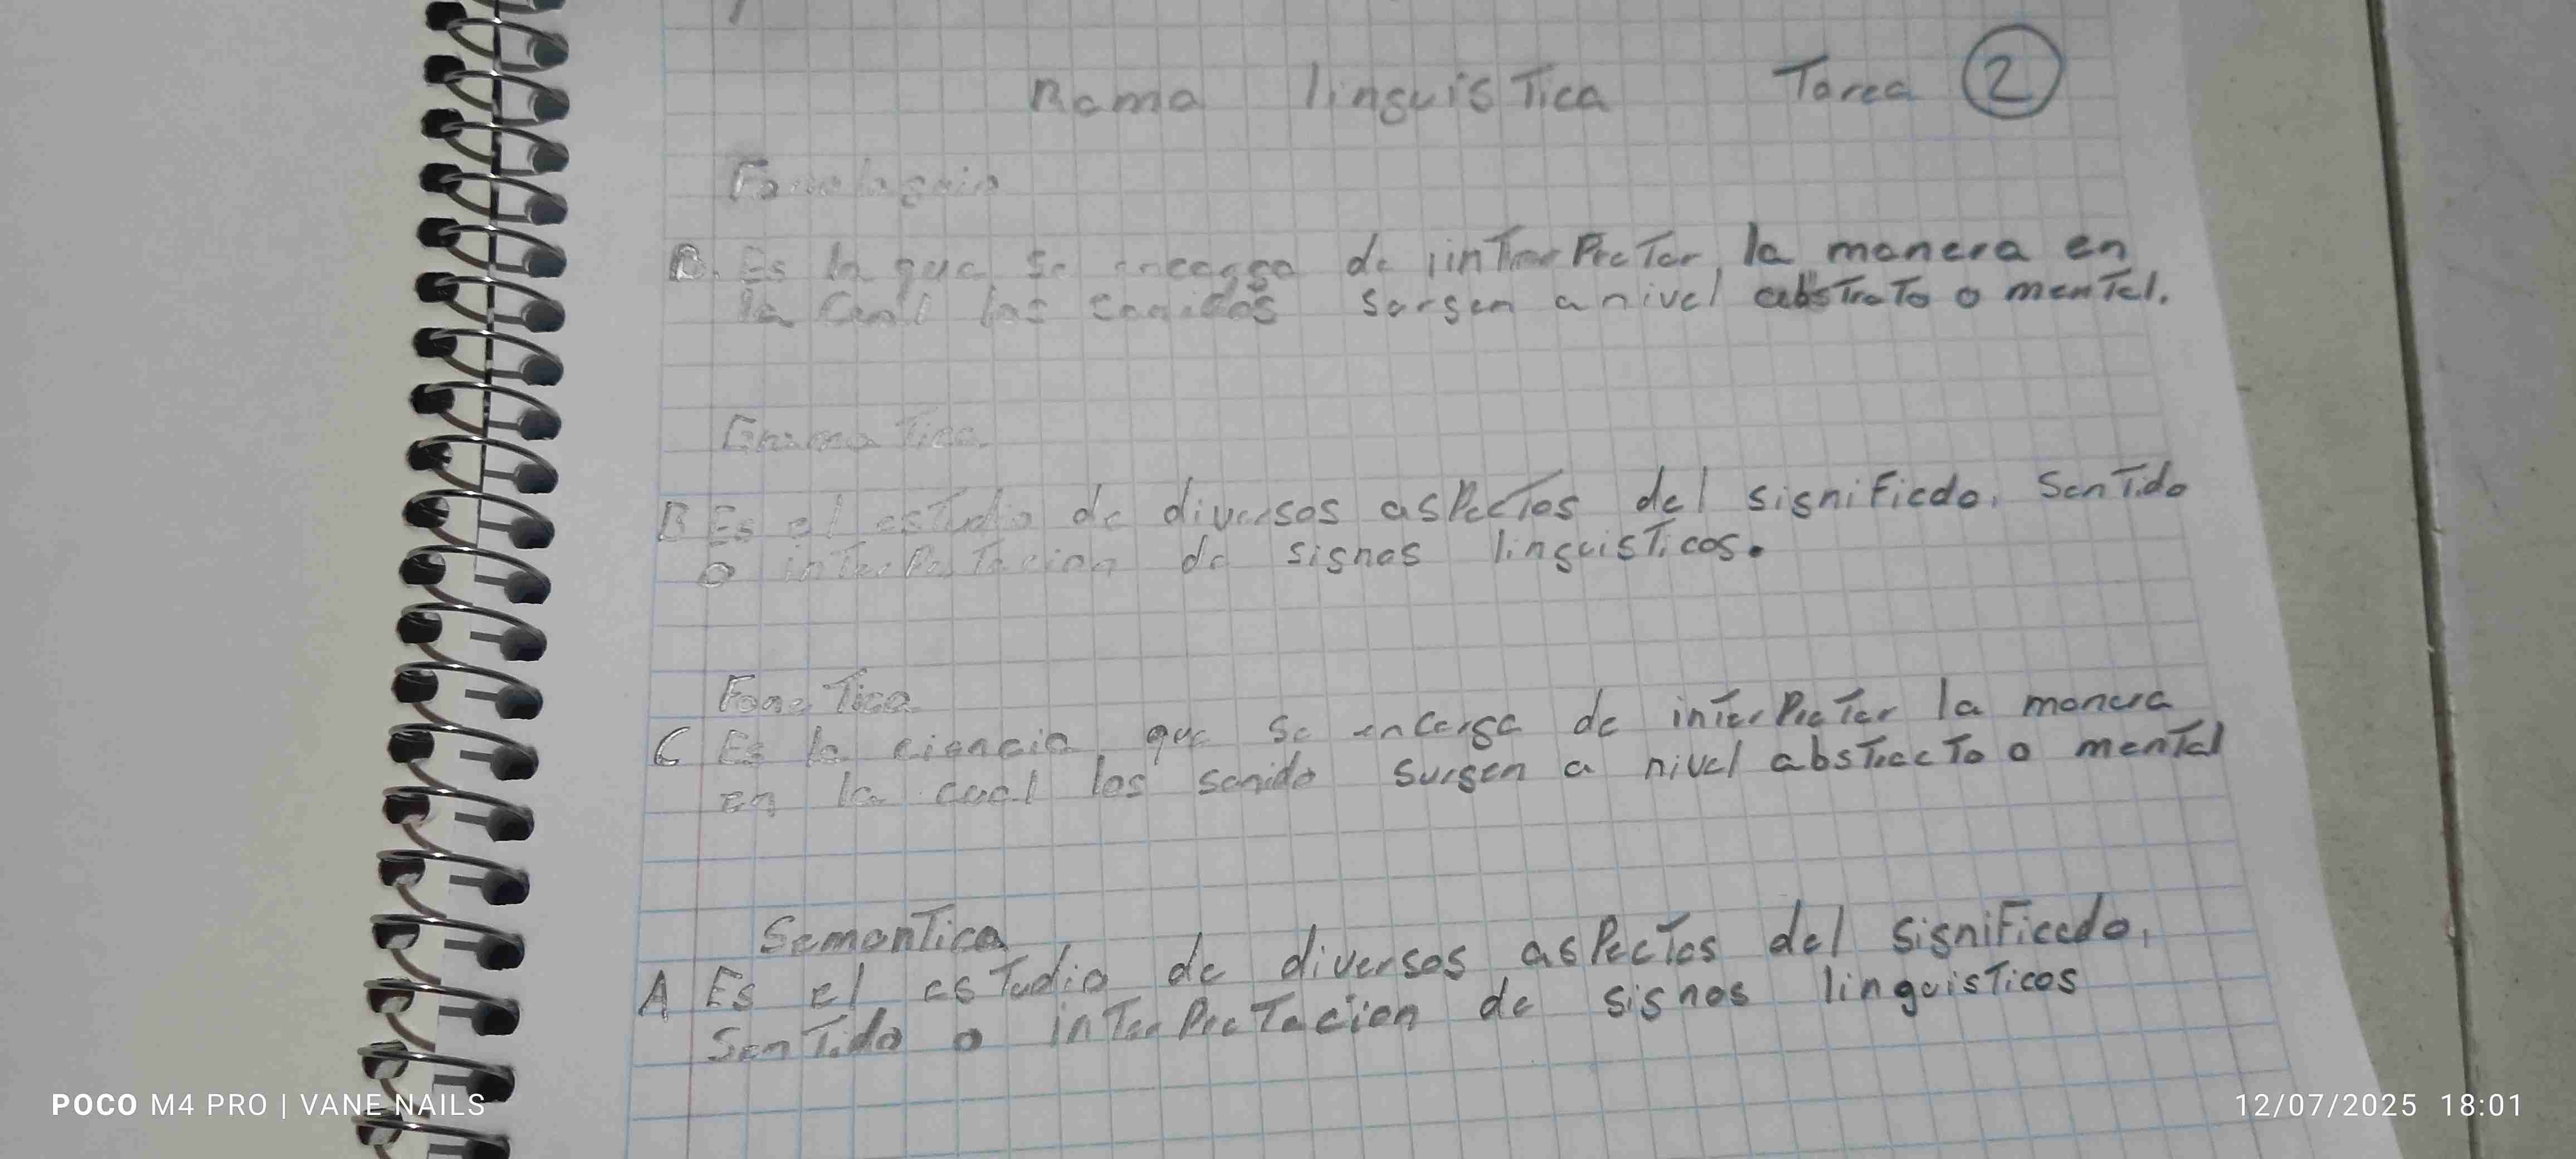 Rama linguistica Tarea 2
Fonologuia
B. Es la que se encarga de iinterpretar, la manera en
la cual los sonidos surgen a nivel abstrato o mental.
Gramatica
B Es el estudio de diversos aspectos del significado, sentido
o interpetacion de signos linguisticos.
Fonetica
C Es la ciencia que se encarga de interpretar la manera
en la cual los sonido surgen a nivel abstracto o mental
Semantica
A Es el estudio de diversos aspectos del significado,
sentido o interpretacion de signos linguisticos
POCO M4 PRO | VANE NAILS
12/07/2025 18:01